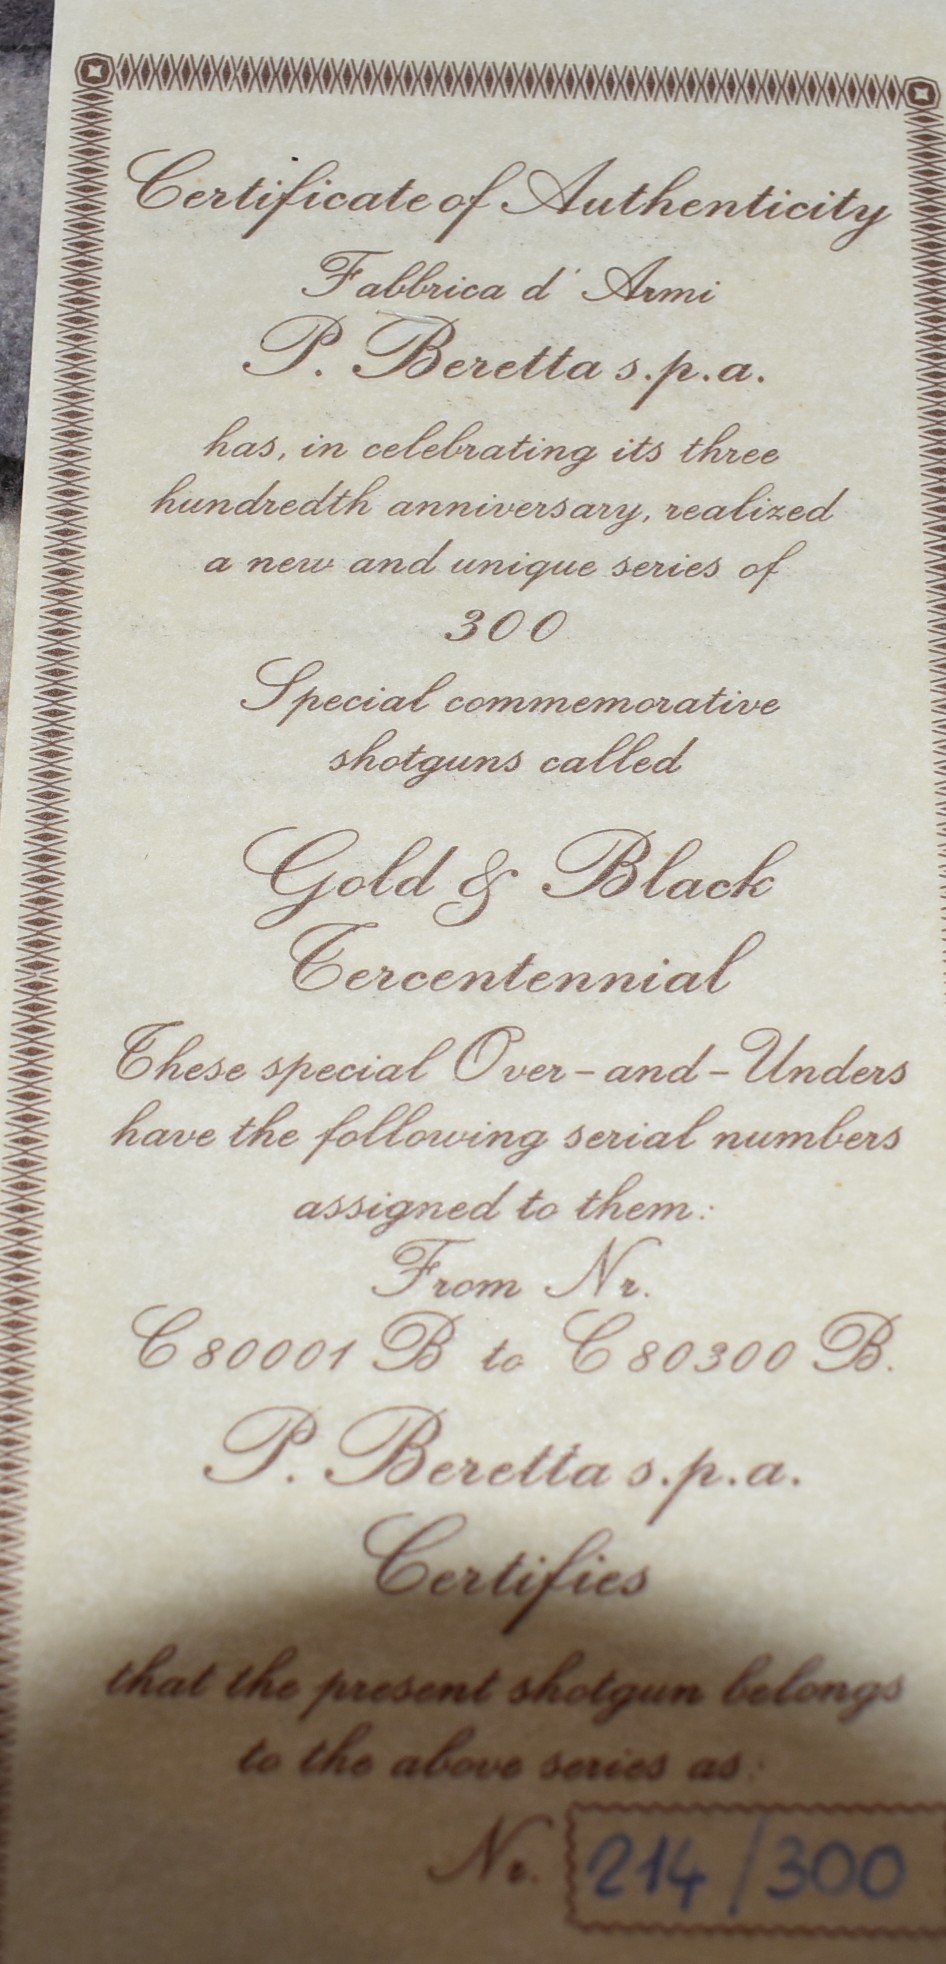 Certificate of Authenticity
Fabbrica d' Armi
P. Beretta s.p.a.
has, in celebrating its three
hundredth anniversary, realized
a new and unique series of
300
Special commemorative
shotguns called
Gold & Black
Tercentennial
These special Over-and-Unders
have the following serial numbers
assigned to them:
From Nr.
C 80001 B to C 80300 B.
P. Beretta s.p.a.
Certifies
that the present shotgun belongs
to the above series as:
Nr. 214/300